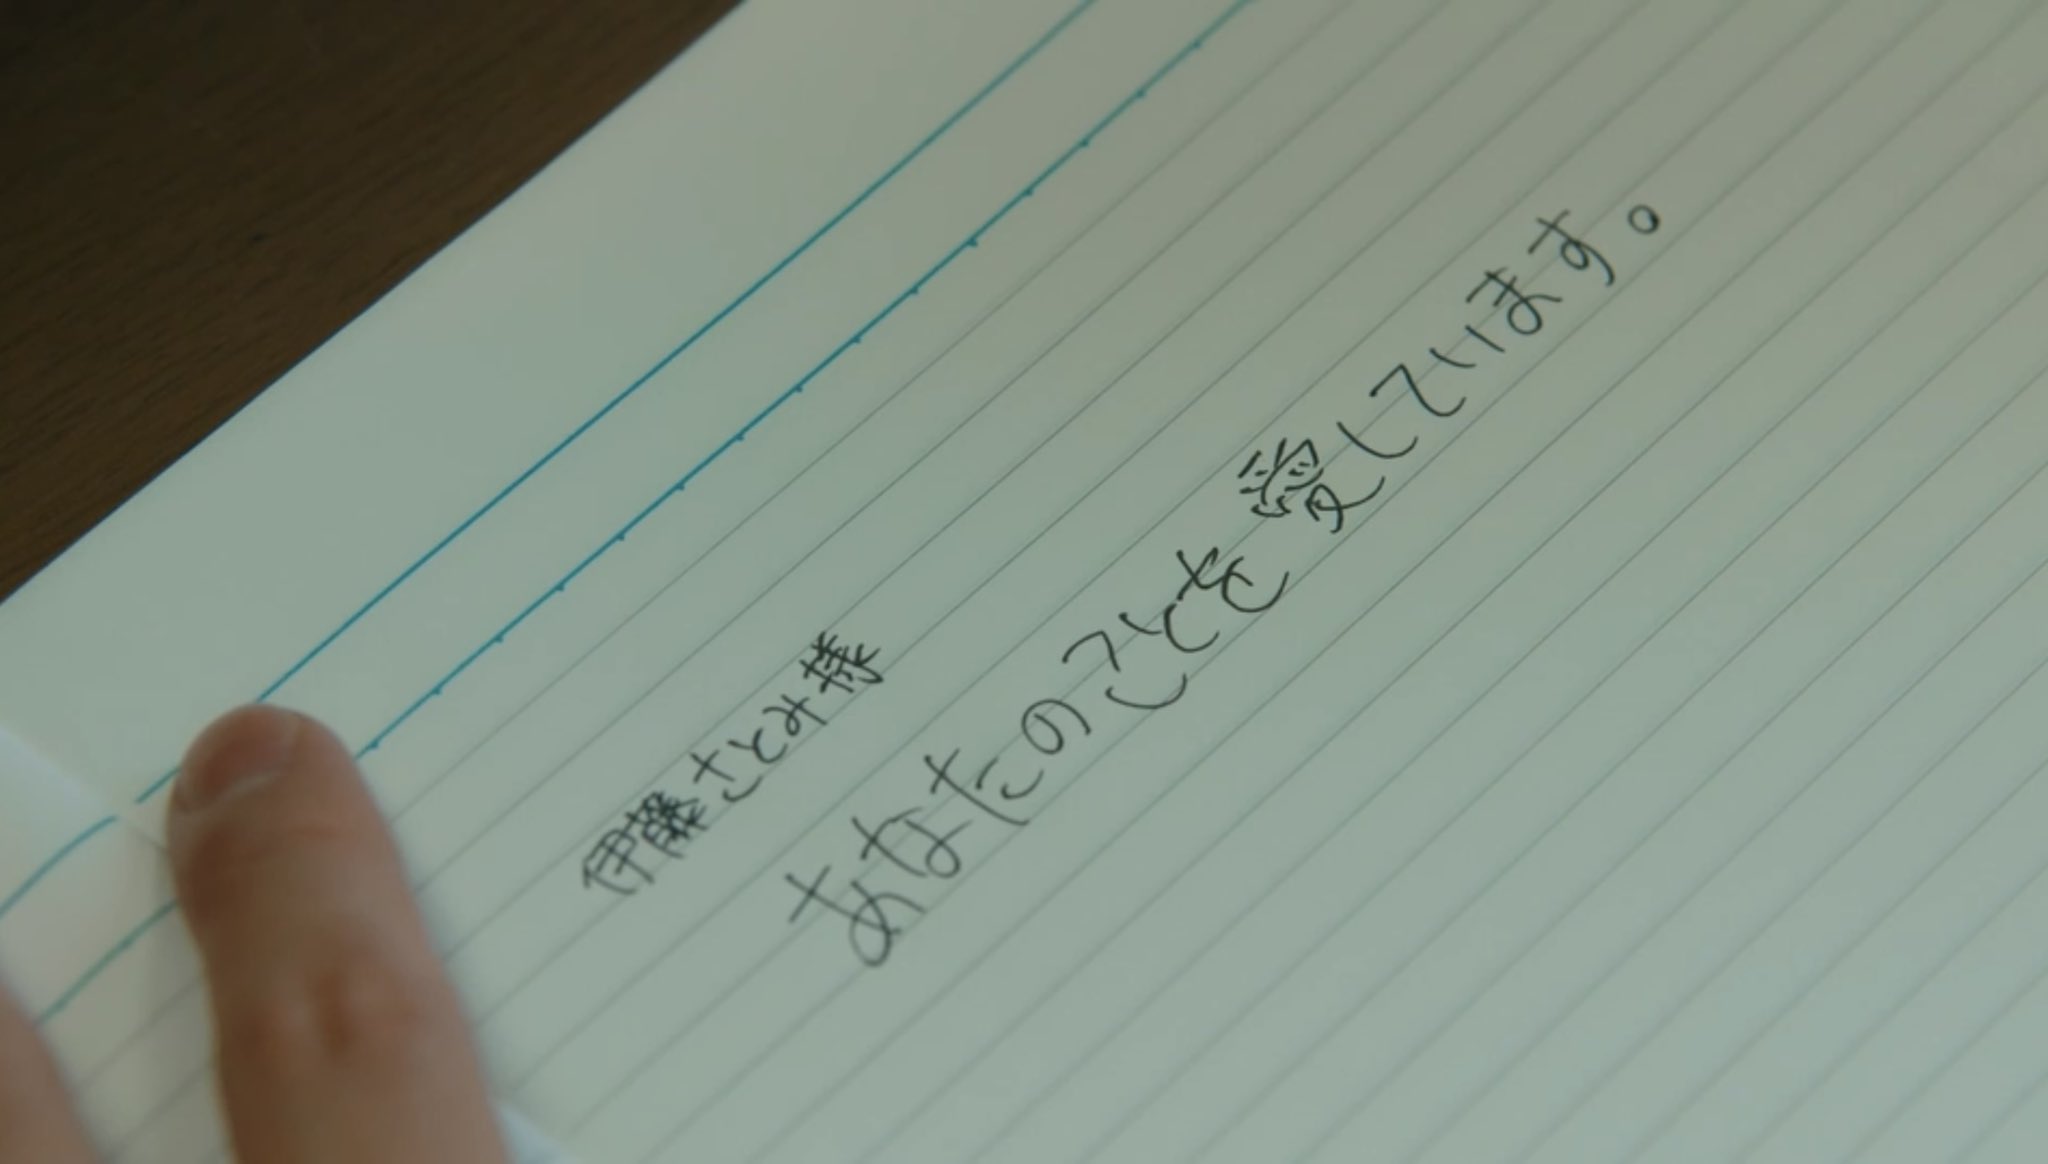 伊藤さとみ様
あなたのことを愛しています。